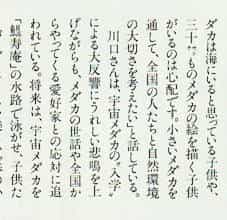 ダカは海にいると思っている子供や、
三十㌢ものメダカの絵を描く子供
がいるのは心配です。小さいメダカを
通して、全国の人たちと自然環境
の大切さを考えたいと話している。
川口さんは、宇宙メダカの〝入学〟
による大反響にうれしい悲鳴を上
げながらも、メダカの世話や全国か
らやってくる愛好家との応対に追
われている。将来は、宇宙メダカを
寿庵」の水路で泳がせ、子供た